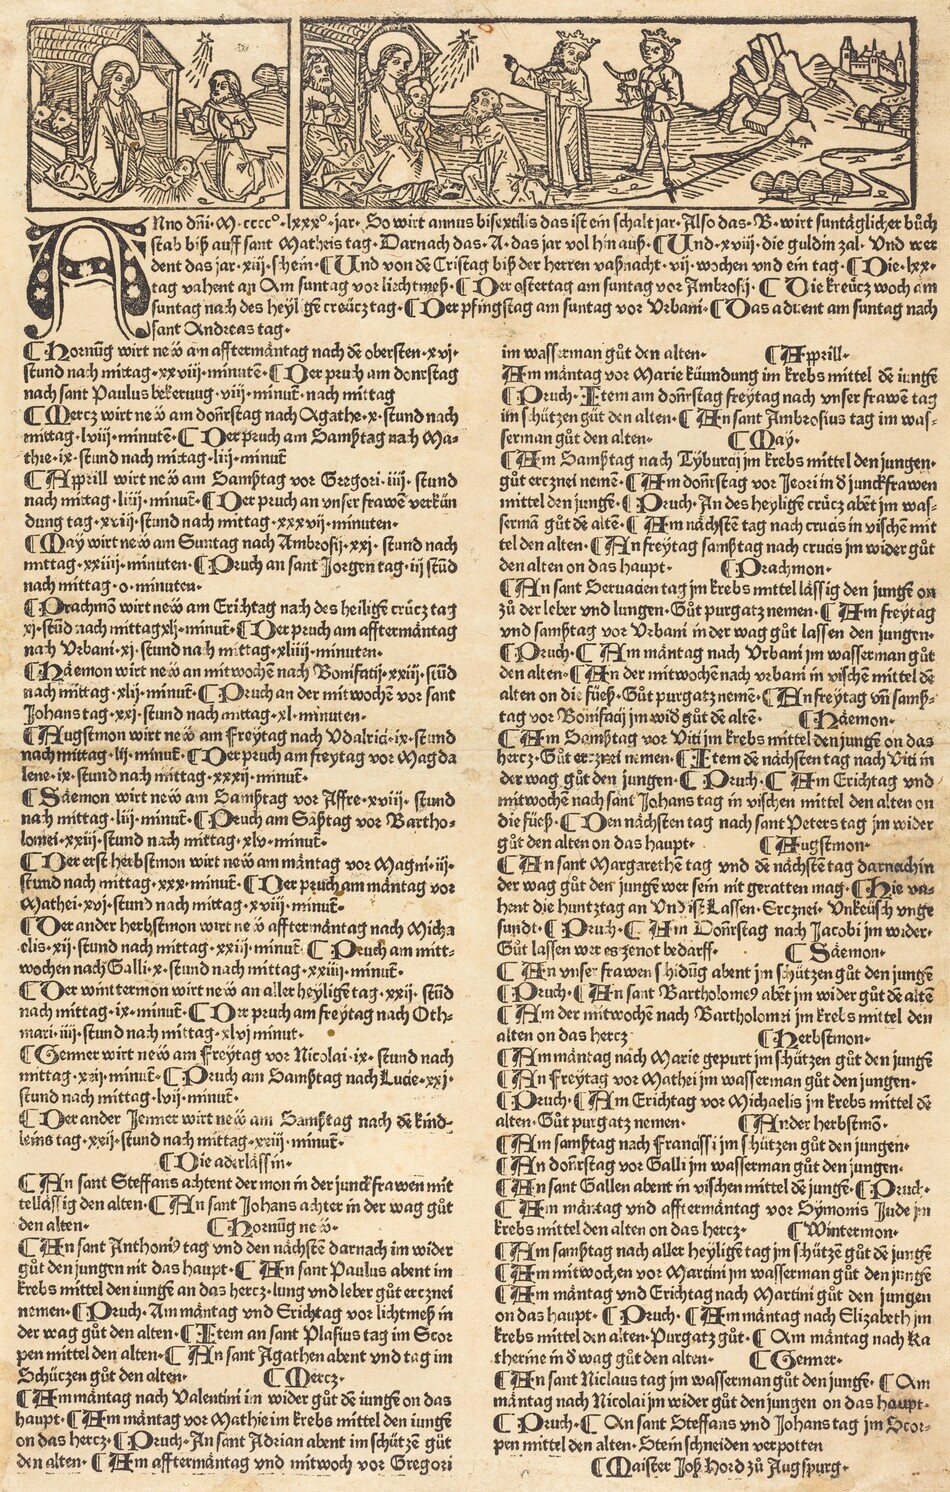 Anno dñi·M·cccc°·lxxx°·jar· So wirt annus bisextilis das ist ein schalt jar·Also das·B·wirt suntäglicher bůch
stab biß auff sant Matheis tag·Darnach das·A·das jar vol hin auß·Und·xviij·die guldin zal· Vnd wer
dent das jar·xiij·schein·Und von dē Cristag biß der herren vaßnacht·vij·wochen vnd ein tag·Die·lxx·
tag vahent an Am suntag vor liechtmeß·Der ostertag am suntag vor Ambrosij·Die kreücz woch am
suntag nach des heyligē creücz tag·Der pfingstag am suntag vor Vrbani·Das aduent am suntag nach
sant Andreas tag·
Hornūg wirt neẅ am afftermäntag nach dē obersten·xvj·
stund nach mittag·xxviij·minutē·Der pruch am donrstag
nach sant Paulus bekerung·viij·minut̄·nach mittag
Mercz wirt neẅ am doñrstag nach Agathe·x·stund nach
mittag·lviij·minutē·Der pruch am Samßtag nach Ma-
thie·ix·stund nach mittag·liij·minut̄
Appril wirt neẅ am Samßtag vor Gregori·iiij·stund
nach mittag·liiij·minut̄·Der pruch an vnser frawē verkün
dung tag·xviij·stund nach mittag·xxxvij·minuten·
May wirt neẅ am Suntag nach Ambrosij·xxj·stund nach
mittag·xxiij·minuten·Pruch an sant Jorgen tag·iij stūd
nach mittag·o·minuten·
Prachmō wirt neẅ am Erichtag nach des heiligē crücz tag
xj·stūd nach mittag xlj·minut̄·Der pruch am afftermäntag
nach Vrbani·xj·stund nach mittag·xliiij·minuten·
Häemon wirt neẅ an mitwochē nach Bonifatij·xxiij·stūd
nach mittag·xlij·minut̄·Pruch an der mitwochē vor sant
Johans tag·xxj·stund nach mittag·xl·minuten·
Augstmon wirt neẅ am Freytag nach Vdalrici·ix·stund
nach mittag·lij·minut̄·Der pruch am freytag vor Magda
lene·ix·stund nach mittag·xxxij·minut̄·
Säemon wirt neẅ am Samßtag vor Affre·xviij·stund
nach mittag·liij·minut̄·Pruch am Sāßtag vor Bartho-
lomei·xxiij·stund nach mittag·xlv·minut̄·
Der erst herbstmon wirt neẅ am mäntag vor Magni·iij·
stund nach mittag·xxx·minut̄·Der pruch am mäntag vor
Mathei·xvj·stund nach mittag·xviij·minut̄·
Der ander herbstmon wirt neẅ afftermäntag nach Micha
elis·xij·stund nach mittag·xxiij·minut̄·Pruch am mitt-
wochen nach Galli·x·stund nach mittag·xxiiij·minut̄·
Der wintermon wirt neẅ an aller heyligē tag·xxij·stūd
nach mittag·ix·minut̄·Der pruch am freytag nach Oth-
mari·iiij·stund nach mittag·xlvj minut·
Genner wirt neẅ am Freytag vor Nicolai·ix·stund nach
mittag·xxij·minut̄·Pruch am Samßtag nach Lucie·xxj·
stund nach mittag·lvij·minut̄·
Der ander Jenner wirt neẅ am Samßtag nach dē kind-
leins tag·xxij·stund nach mittag·xxiij·minut̄·
Die aderlässin·
An sant Steffans achtent der mon in der junckfrawen mit
tellässig den alten·An sant Johans achter in der wag gůt
den alten·
Hornūg neẅ·
An sant Anthonij tag vnd den nächstē darnach im wider
gůt den jungen nit das haupt·An sant Paulus abent im
krebs mittel den iungē an das hercz·lung vnd leber gůt ercznei
nemen·Pruch·Am mäntag vnd Erichtag vor lichtmeß in
der wag gůt den alten·Item an sant Plasius tag im Scor
pen mittel den alten·An sant Agathen abent vnd tag im
Schüczen gůt den alten·
Mercz·
Am mäntag nach Valentini im wider gůt dē iungē on das
haupt·Am mäntag vor Mathie im krebs mittel den iungē
on das hercz·Pruch·An sant Adrian abent im schützē gůt
den alten·Am afftermäntag vnd mitwoch vor Gregori
im wasserman gůt den alten·
Apprill·
Am mäntag vor Marie küundung im krebs mittel dē iungē
Pruch·Item am doñrstag freytag nach vnser frawē tag
im schützen gůt den alten·An sant Ambrosius tag im was-
serman gůt den alten·
May·
Am Samßtag nach Tyburcij jm krebs mittel den jungen·
gůt ercznei nemē·Am doñrstag vor Jeori in d̄ junckfrawen
mittel den jungē·Pruch·An des heyligē crücz abēt jm was-
sermā gůt dē altē·Am nächstē tag nach crucis in vischē mit
tel den alten·An freytag samßtag nach crucis jm wider gůt
den alten on das haupt·
Prachmon·
An sant Seruacien tag jm krebs mittel lässig den jungē on
zů der leber vnd lungen·Gůt purgatz nemen·Am freytag
vnd samßtag vor Vrbani in der wag gůt lassen den jungen·
Pruch·Am mäntag nach Vrbani jm wasserman gůt
den alten·An der mitwochē nach vrbani in vischē mittel dē
alten on die füeß·Gůt purgatz nemē·An freytag vn̄ samß-
tag vor Bonifacij jm wid̄ gůt dē altē·
Häemon·
Am Samßtag vor Viti jm krebs mittel den jungē on das
hercz·Gůt ercznei nemen·Item dē nächsten tag nach Viti in
der wag gůt den jungen·Pruch·Am Erichtag vnd
mitwochē nach sant Johans tag in vischen mittel den alten on
die füeß·Den nächsten tag nach sant Peters tag jm wider
gůt den alten on das haupt·
Augstmon·
An sant Margarethē tag vnd dē nächstē tag darnach in
der wag gůt den jungē wer sein nit geratten mag·Hie va-
hent die huntztag an Vnd ist Lassen·Ercznei·Vnkeüsch vnge
sundt·Pruch·Am Doñrstag nach Jacobi im wider·
Gůt lassen wer es zenot bedarff·
Säemon·
An vnser frawen schidūg abent jm schützen gůt den jungē
Pruch·An sant Bartholomeꝰ abēt jm wider gůt dē altē
Am der mitwochē nach Bartholomei jm krebs mittel den
alten on das hercz
Herbstmon·
Am mäntag nach Marie gepurt jm schützen gůt den jungē
An Freytag vor Mathei jm wasserman gůt den jungen·
Pruch·Am Erichtag vor Michaelis jn krebs mittel dē
alten·Gůt purgatz nemen·
Ander herbstmō·
Am samßtag nach Francissi jm schützen gůt den jungen·
An doñrstag vor Galli jm wasserman gůt den jungen·
An sant Gallen abent in vischen mittel dē jungē·Pruch·
Am mäntag vnd afftermäntag vor Symonis Jude jn
krebs mittel den alten on das hercz·
Wintermon·
Am samßtag nach aller heyligē tag jm schützē gůt dē jungē
Am mitwochen vor Martini jm wasserman gůt den jungē
Am mäntag vnd Erichtag nach Martini gůt den jungen
on das haupt·Pruch·Am mäntag nach Elizabeth jm
krebs mittel den alten·Purgatz gůt·Am mäntag nach Ka
therine in d̄ wag gůt den alten·
Genner·
An sant Niclaus tag jm wasserman gůt den jungē·Am
mäntag nach Nicolai jm wider gůt den jungen on das haupt·
Pruch·An sant Steffans vnd Johans tag jm Scor-
pen mittel den alten·Stein schneiden verpotten
Maister Joß Hord zů Augspurg·